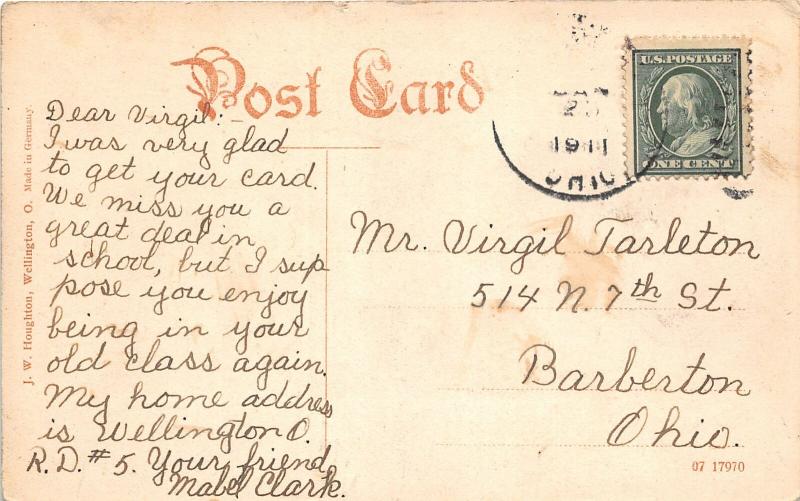 Post Card
U.S. POSTAGE
ONE CENT
1911
OHIO
Dear Virgil:-
I was very glad
to get your card.
We miss you a
great deal in
school, but I sup
pose you enjoy
being in your
old class again.
My home address
is Wellington O.
R.D. #5. Your friend
Mabel Clark.
Mr. Virgil Tarleton
514 N. 7th St.
Barberton
Ohio.
J. W. Houghton, Wellington, O. Made in Germany.
07 17970